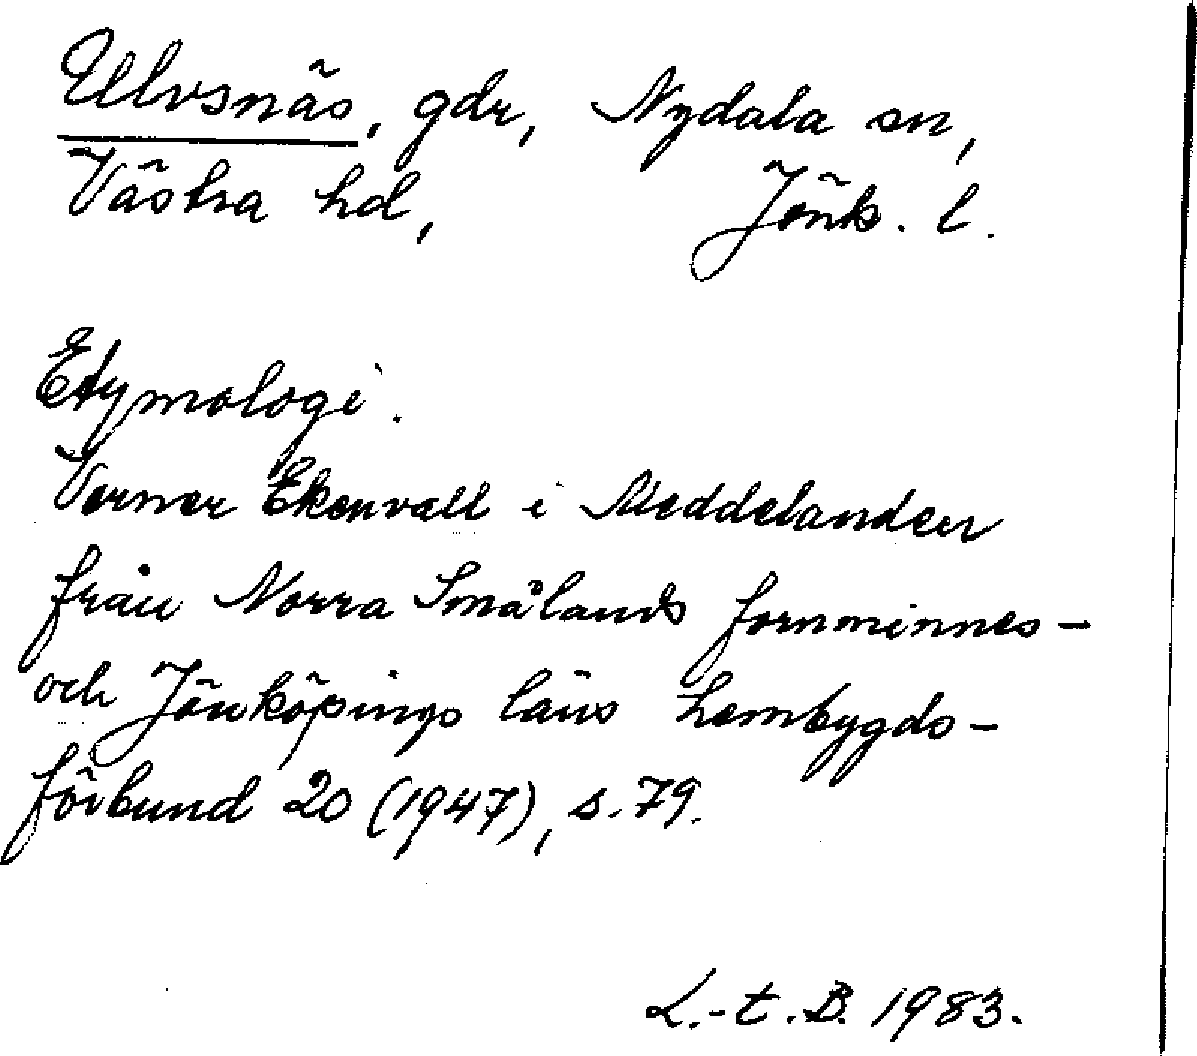 Ulvsnäs, gdr, Nydala sn,
Västra hd, Jönk. l.
Etymologi.
Verner Ekenvall i Meddelanden
från Norra Smålands fornminnes-
och Jönköpings läns hembygds-
förbund 20 (1947), s. 79.
L.-t. B. 1983.